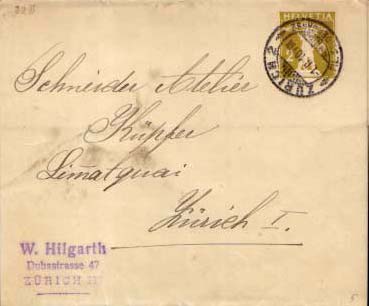 HELVETIA
ZÜRICH 2
Schneider Atelier
Küpfer
Lim̅atquai
Zürich I.
W. Hilgarth
Dubsstrasse 47
ZÜRICH III